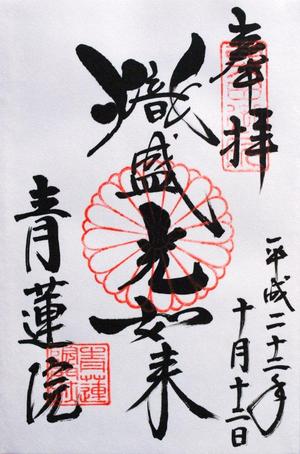 奉拝
平成二十二年
十月十二日
熾盛光如来
青蓮院
青蓮